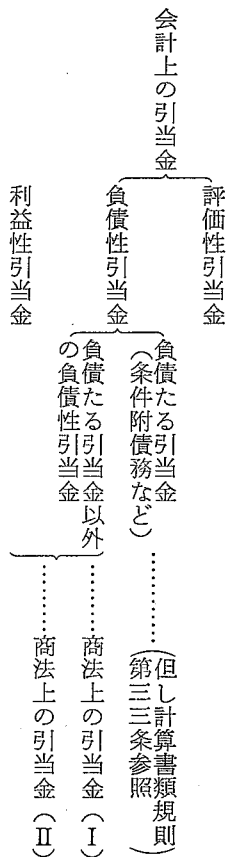 会計上の引当金
評価性引当金
負債性引当金
負債たる引当金
（条件附債務など）
…………
（但し計算書類規則
第三三条参照）
負債たる引当金以外
の負債性引当金
………商法上の引当金（Ⅰ）
利益性引当金
………商法上の引当金（Ⅱ）